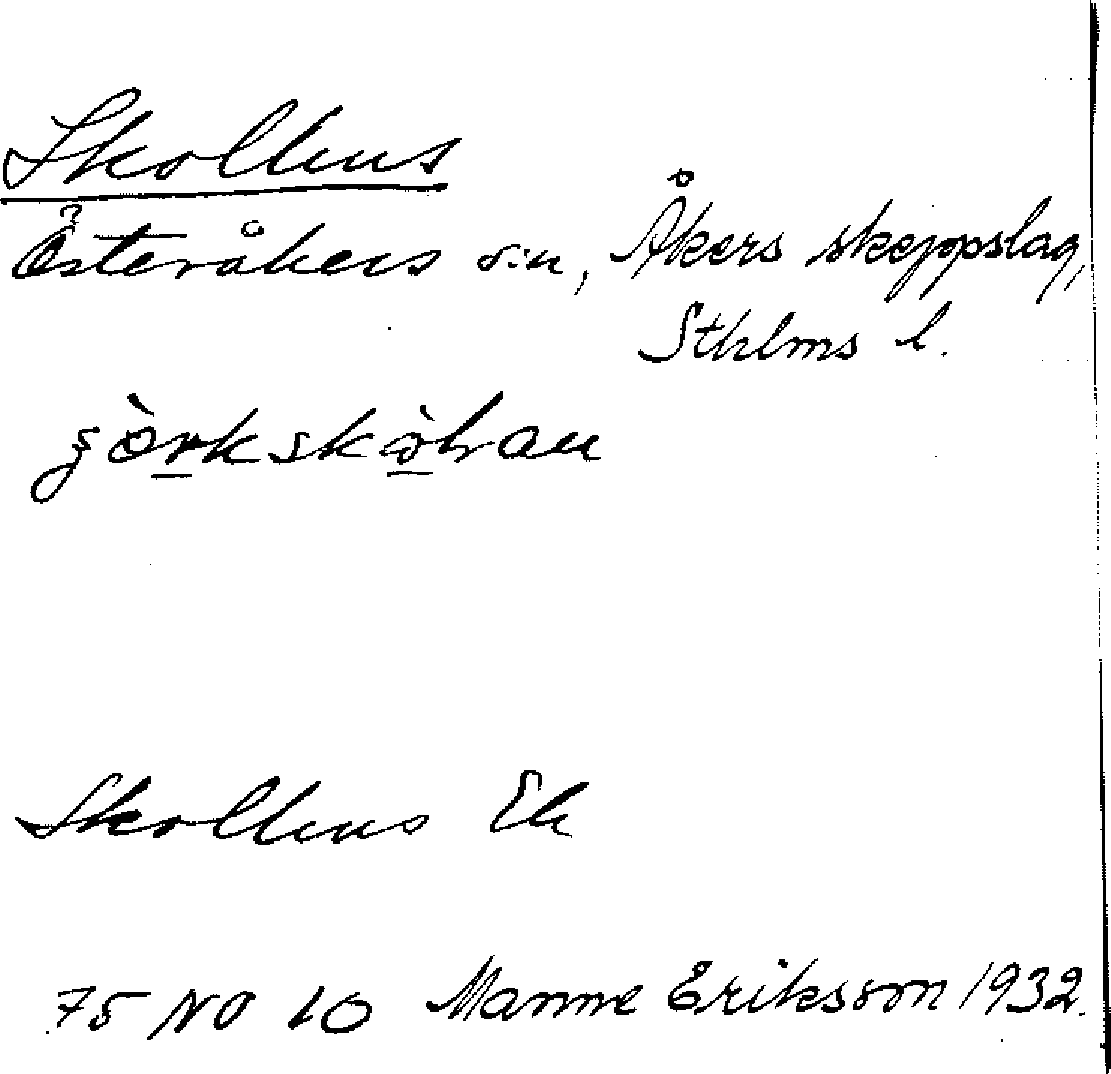 Skolhus
Österåkers s:n, Åkers skeppslag,
Sthlms l.
Skolhus Ek
75 NO 10 Manne Eriksson 1932.